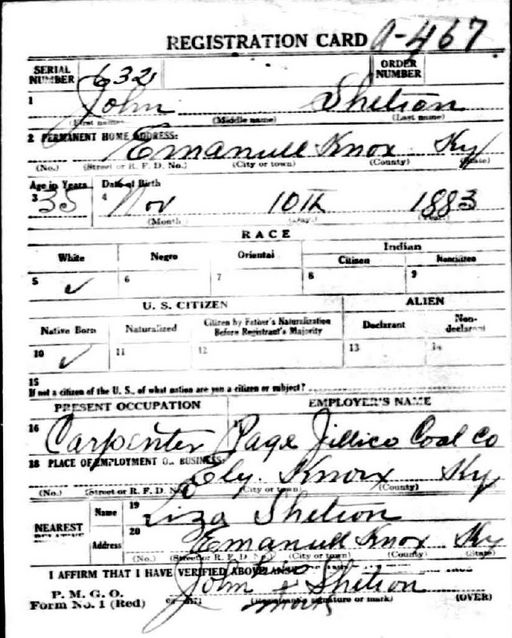 REGISTRATION CARD A-467
SERIAL NUMBER 632 ORDER NUMBER
1 John Shelton
(First name) (Middle name) (Last name)
2 PERMANENT HOME ADDRESS:
Emanuell Knox Ky
(No.) (Street or R. F. D. No.) (City or town) (County) (State)
Age in Years Date of Birth
3 35 4 Nov 10th 1883
(Month) (Day) (Year)
RACE
White Negro Oriental Indian
Citizen Noncitizen
5 ✓ 6 7 8 9
U. S. CITIZEN ALIEN
Native Born Naturalized Citizen by Father's Naturalization Before Registrant's Majority Declarant Non-declarant
10 ✓ 11 12 13 14
15
If not a citizen of the U. S., of what nation are you a citizen or subject?
PRESENT OCCUPATION EMPLOYER'S NAME
16 Carpenter Page Jillico Coal Co
18 PLACE OF EMPLOYMENT OR BUSINESS:
Ely. Knox Ky
(No.) (Street or R. F. D. No.) (City or town) (County)
NEAREST RELATIVE Name 19 Liza Shelton
Address 20 Emanuell Knox Ky
(No.) (Street or R. F. D. No.) (City or town) (County) (State)
I AFFIRM THAT I HAVE VERIFIED ABOVE
P. M. G. O.
Form No. 1 (Red) John x Shelton
mark
(Registrant's signature or mark) (OVER)